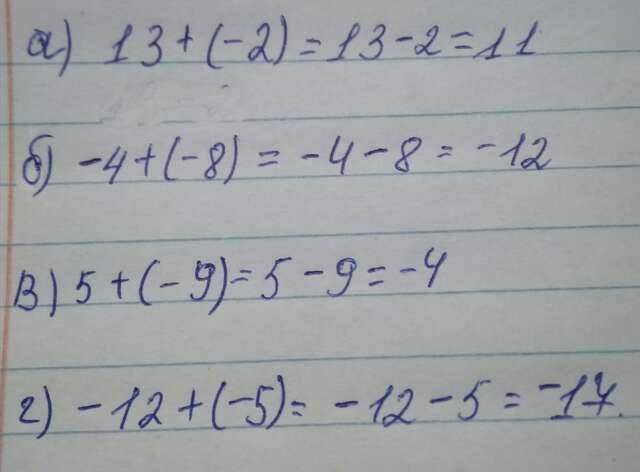 а) 13+(-2)=13-2=11
б) -4+(-8)=-4-8=-12
в) 5+(-9)=5-9=-4
г) -12+(-5)=-12-5=-17.